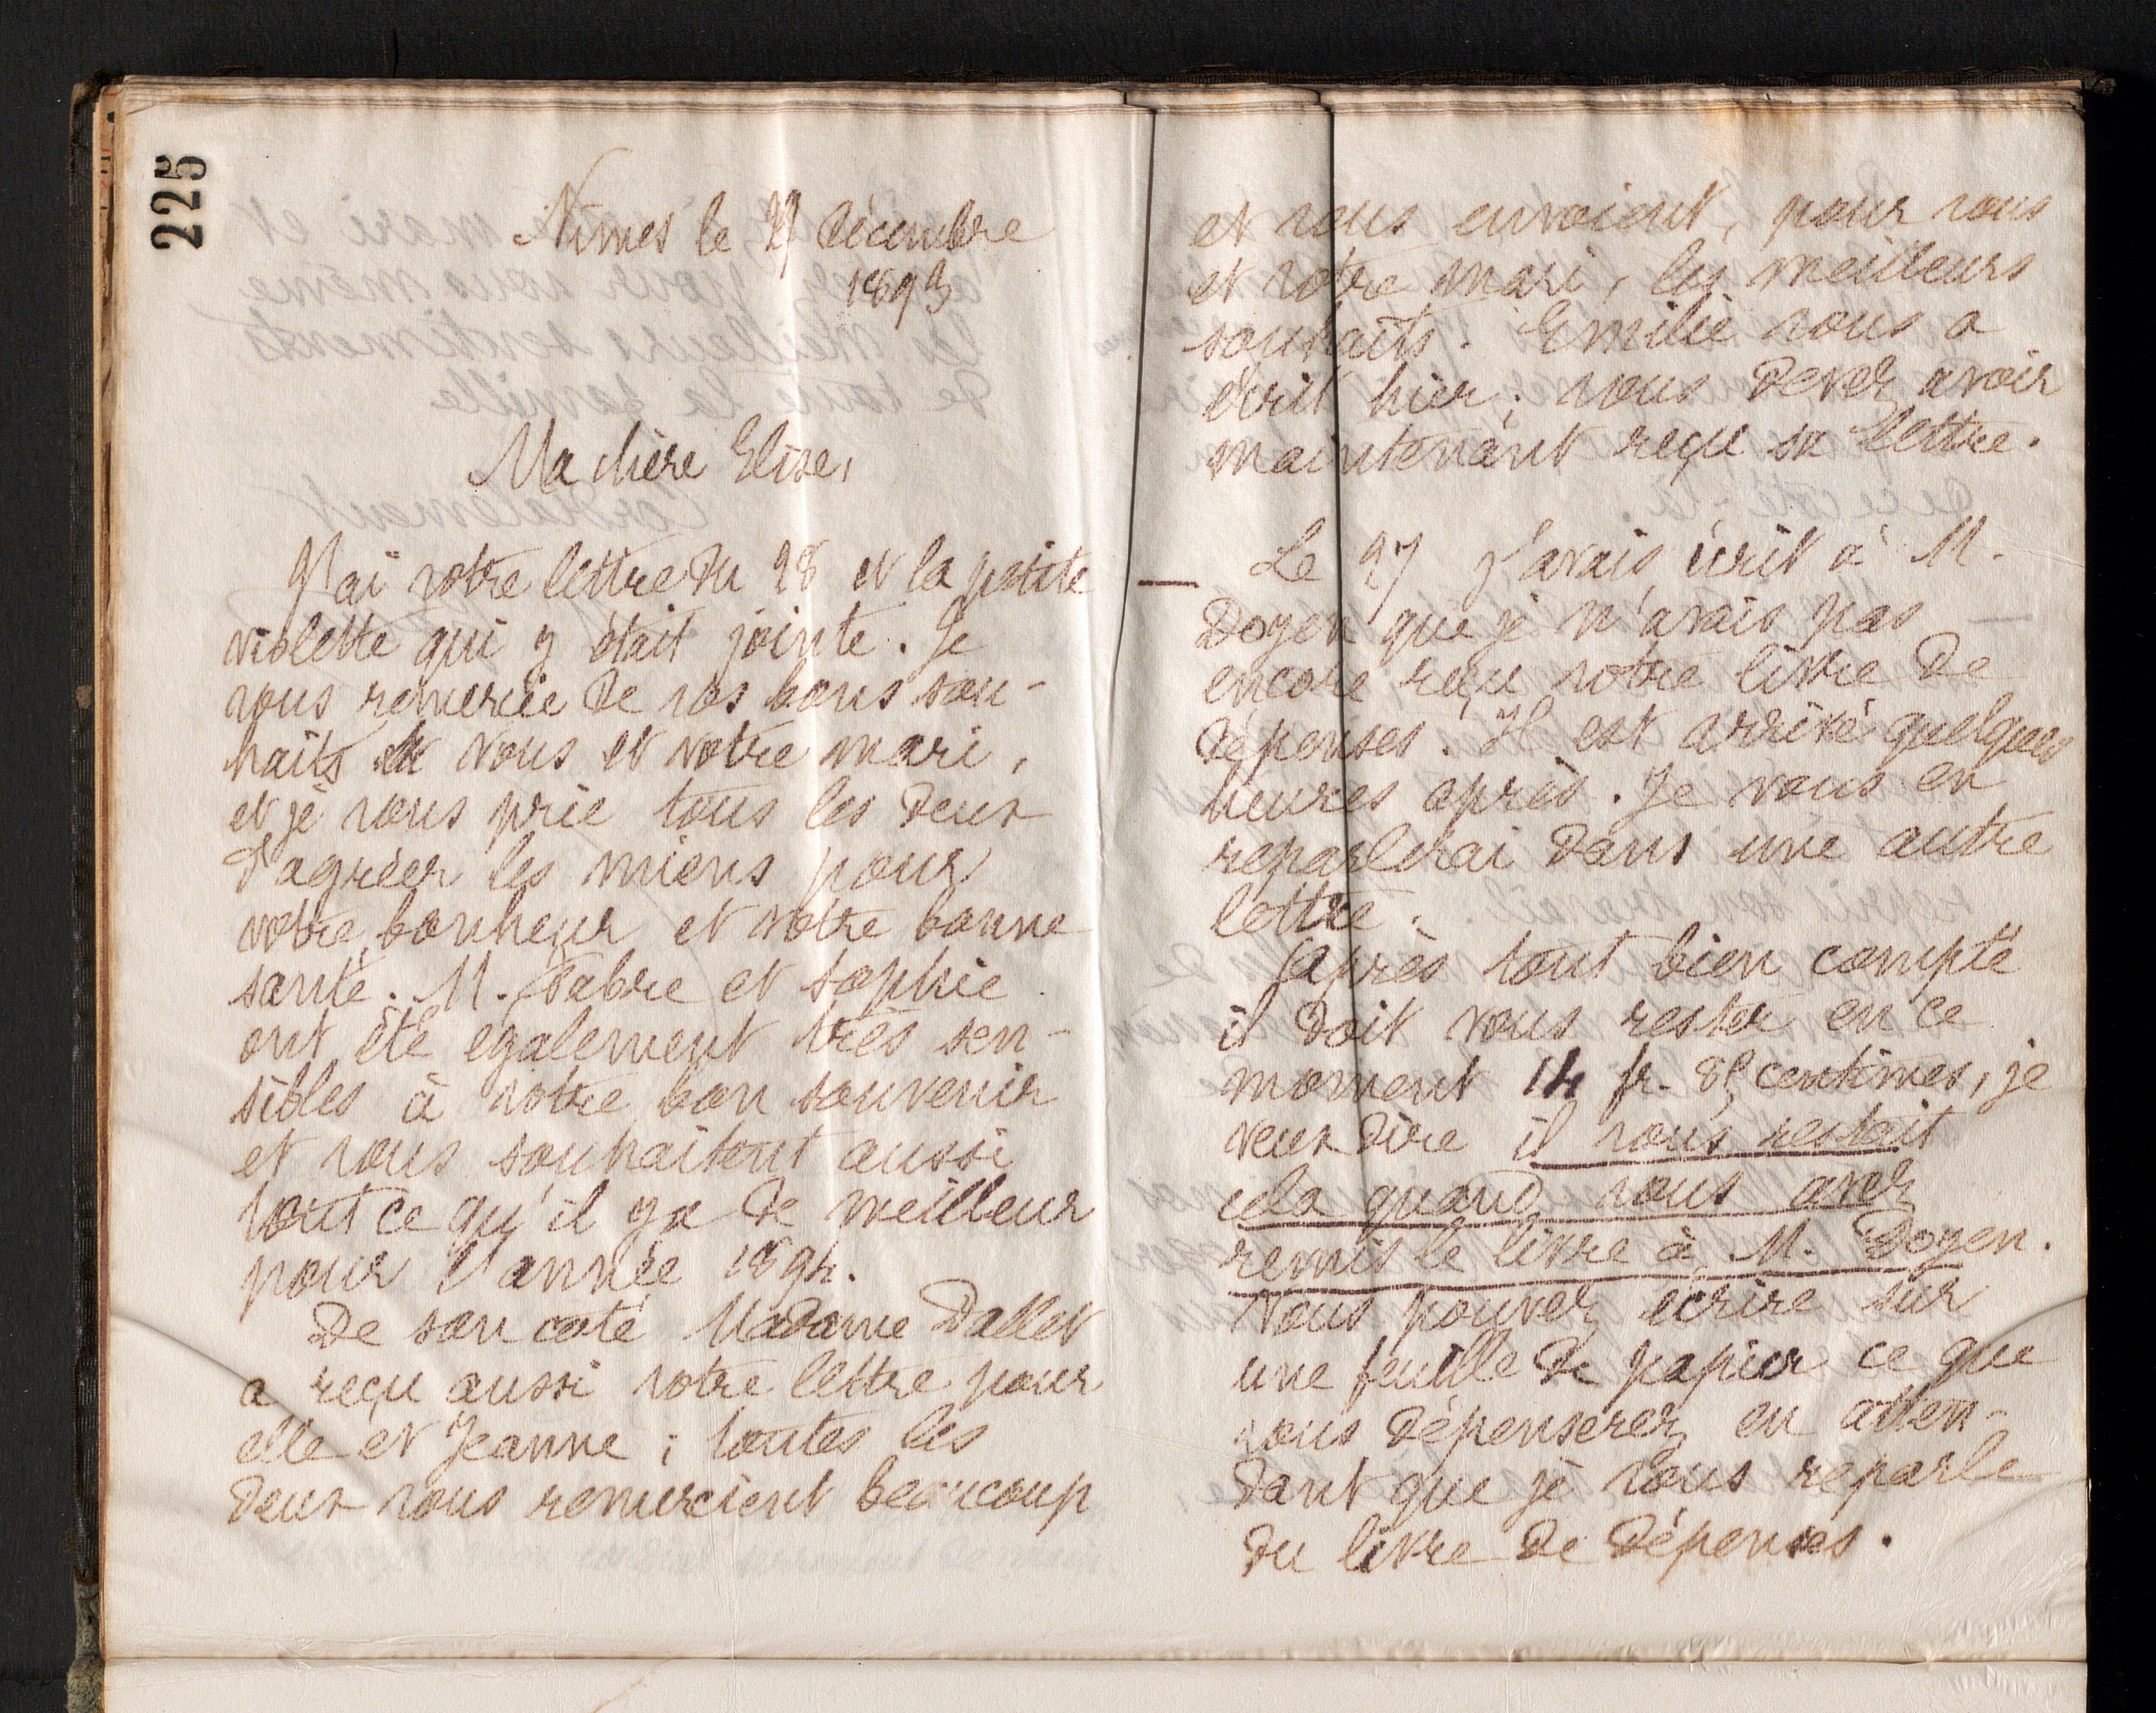 225
Nîmes le 29 décembre
1893
Ma chère Elise,
J'ai votre lettre du 28 et la petite
violette qui y était jointe. Je
vous remercie de vos bons sou-
haits et vous et votre mari,
et je vous prie tous les deux
d'agréer les miens pour
votre bonheur et votre bonne
santé. M. Fabre et Sophie
ont été également très sen-
sibles à votre bon souvenir
et vous souhaitent aussi
tout ce qu'il y a de meilleur
pour l'année 1894.
De son coté Madame Dallet
a reçu aussi votre lettre pour
elle et Jeanne ; toutes les
deux vous remercient beaucoup
et vous envoient, pour vous
et votre mari, les meilleurs
souhaits. Emilie vous a
écrit hier ; vous devez avoir
maintenant reçu sa lettre.
— Le 27 j'avais écrit à M.
Doyen que je n'avais pas
encore reçu votre livre de
dépenses. Il est arrivé quelques
heures après. Je vous en
reparlerai dans une autre
lettre.
Après tout bien compté
il doit vous rester en ce
moment 14 fr. 85 centimes, je
veux dire il vous restait
cela quand vous avez
remis le livre à M. Doyen.
Vous pouvez écrire sur
une feuille de papier ce que
vous dépenserez en atten-
dant que je vous reparle
du livre de dépenses.